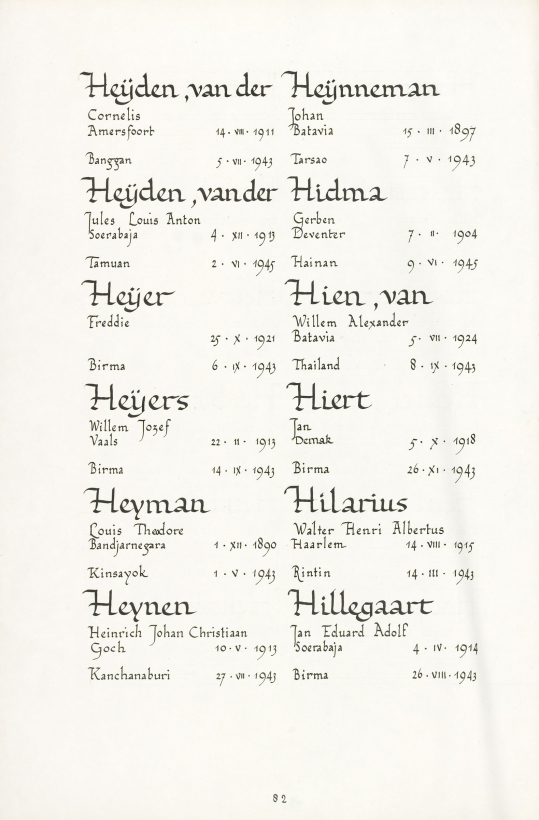 Heÿden ,van der
Cornelis
Amersfoort 14 · VIII · 1911
Banggan 5 · VII · 1943
Heÿden ,van der
Jules Louis Anton
Soerabaja 4 · XII · 1913
Tamuan 2 · VI · 1945
Heÿer
Freddie
25 · X · 1921
Birma 6 · IX · 1943
Heÿers
Willem Jozef
Vaals 22 · II · 1913
Birma 14 · IX · 1943
Heyman
Louis Theodore
Bandjarnegara 1 · XII · 1890
Kinsayok 1 · V · 1943
Heynen
Heinrich Johan Christiaan
Goch 10 · V · 1913
Kanchanaburi 27 · VII · 1943
Heÿnneman
Johan
Batavia 15 · III · 1897
Tarsao 7 · V · 1943
Hidma
Gerben
Deventer 7 · II · 1904
Hainan 9 · VI · 1945
Hien ,van
Willem Alexander
Batavia 5 · VII · 1924
Thailand 8 · IX · 1943
Hiert
Jan
Demak 5 · X · 1918
Birma 26 · XI · 1943
Hilarius
Walter Henri Albertus
Haarlem 14 · VIII · 1915
Rintin 14 · III · 1943
Hillegaart
Jan Eduard Adolf
Soerabaja 4 · IV · 1914
Birma 26 · VIII · 1943
82